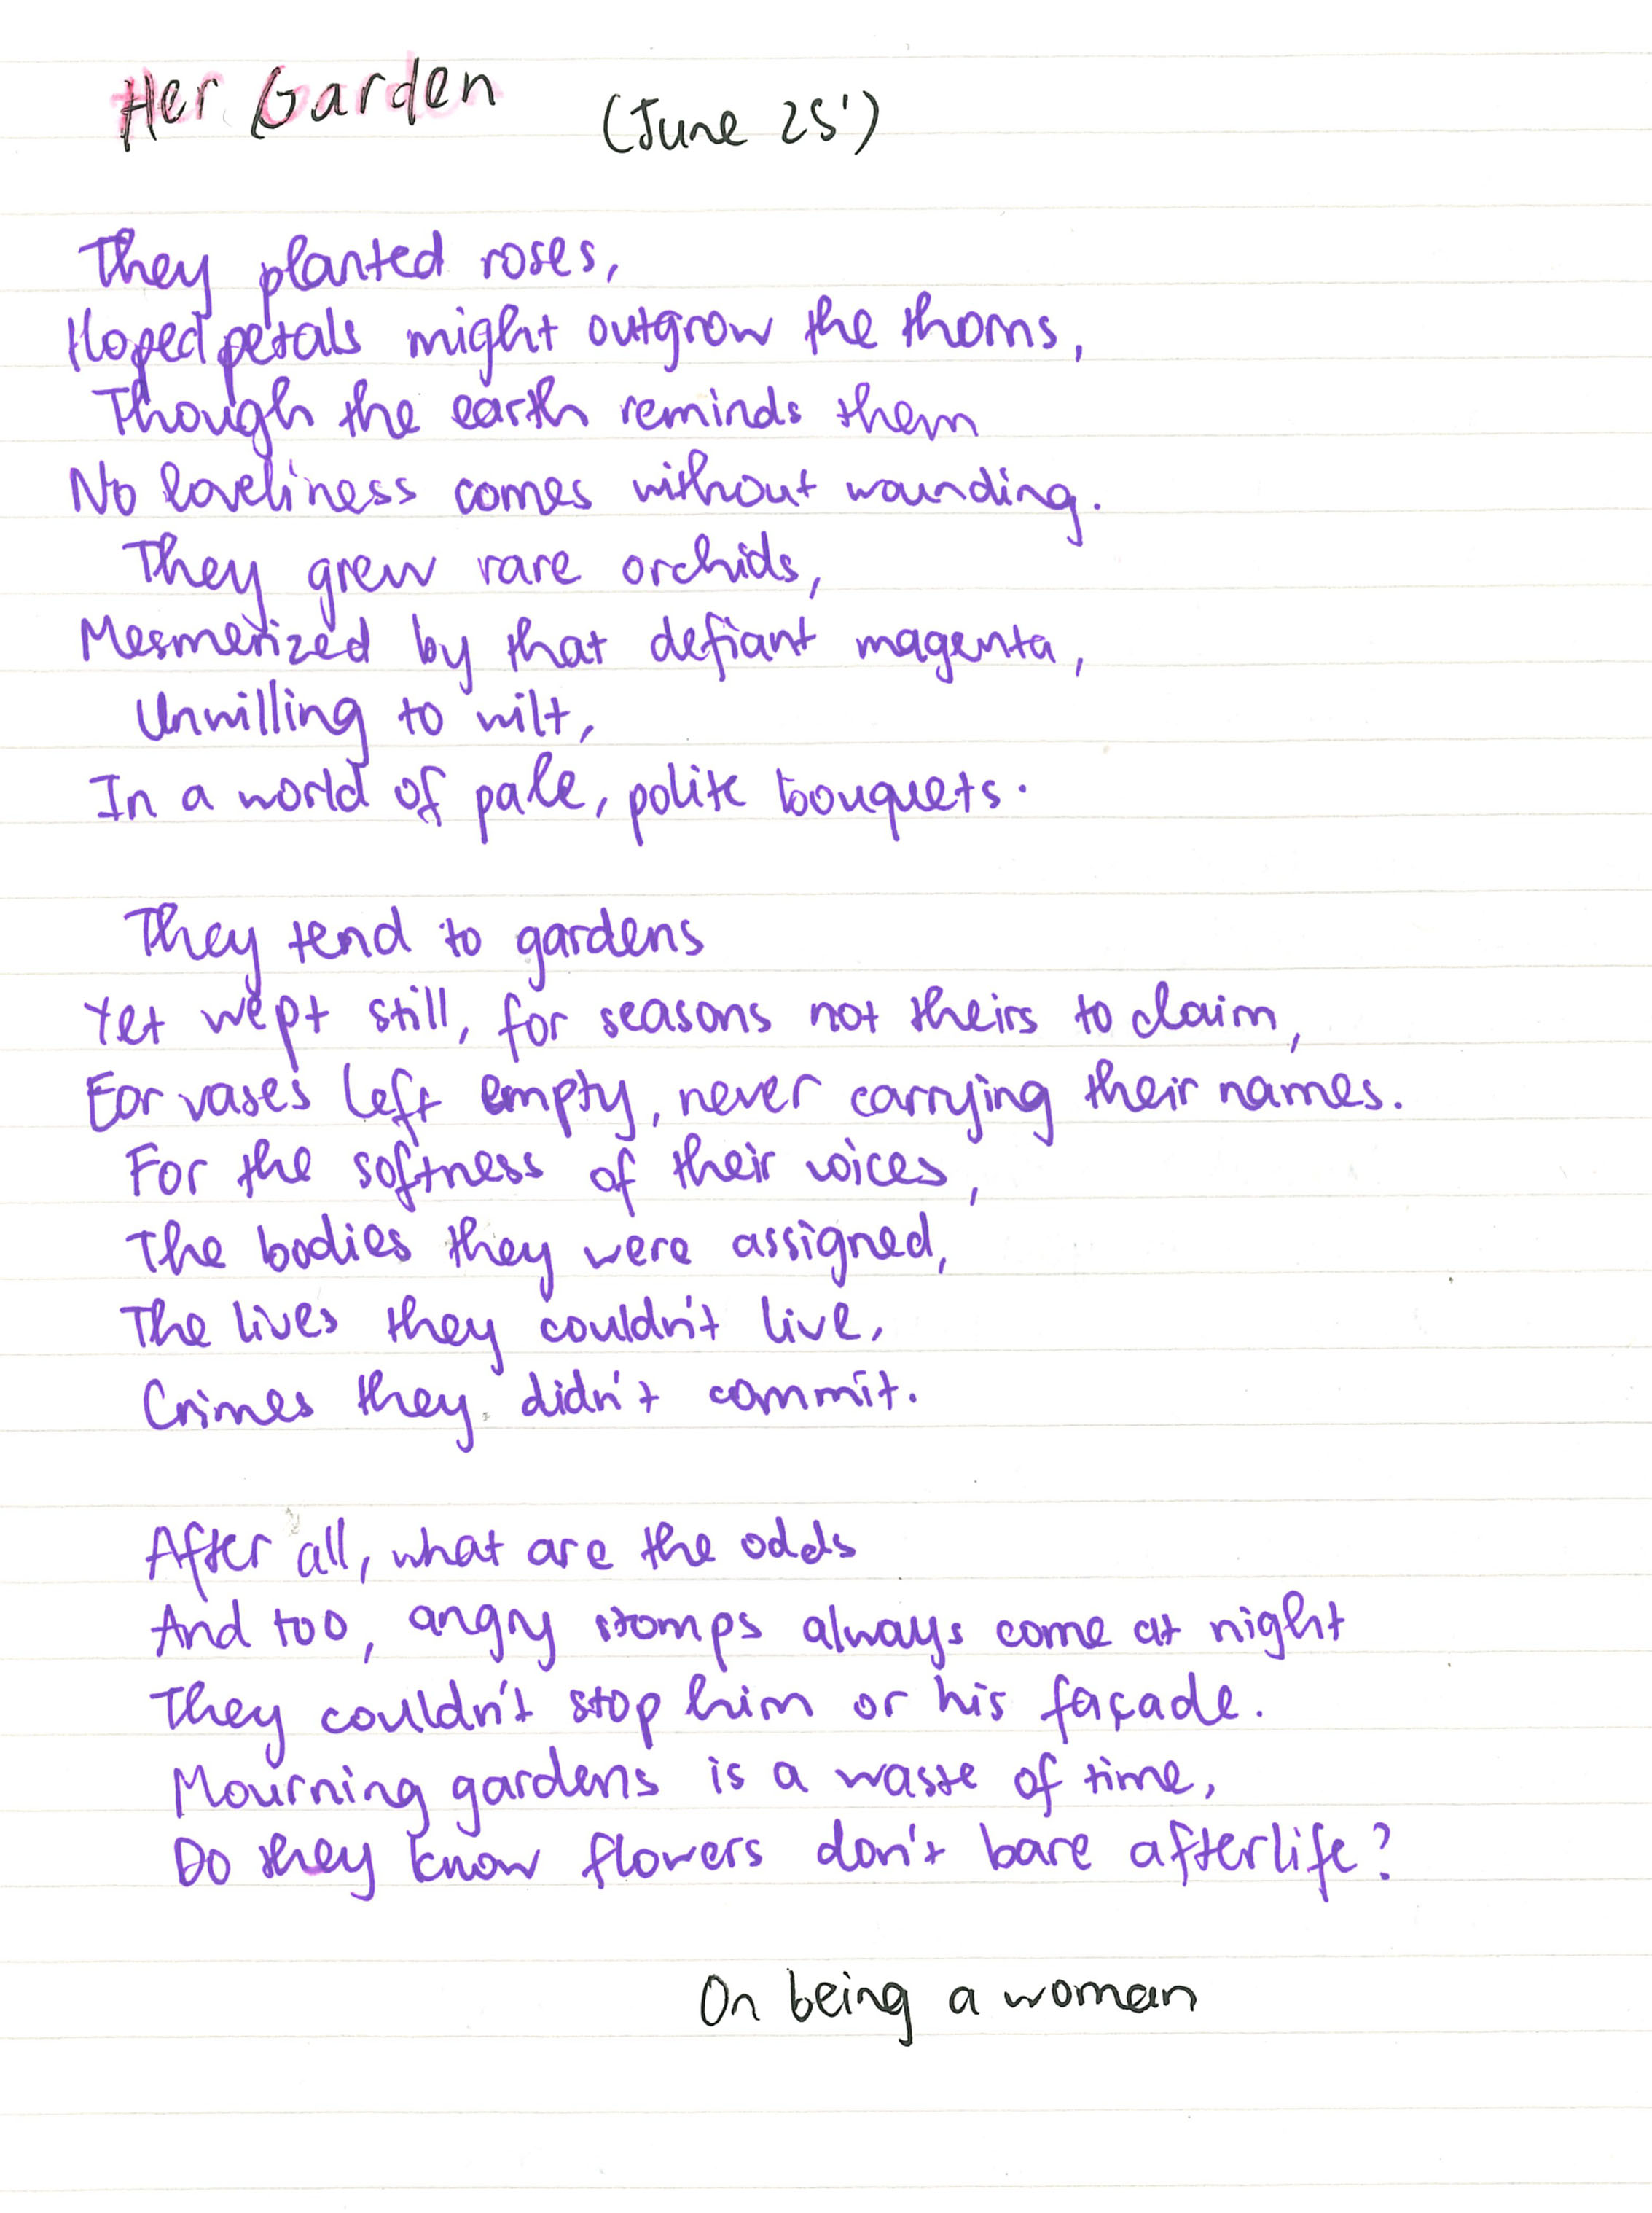 Her Garden (June 25')
They planted roses,
Hoped petals might outgrow the thorns,
Though the earth reminds them
No loveliness comes without wounding.
They grew rare orchids,
Mesmerized by that defiant magenta,
Unwilling to wilt,
In a world of pale, polite bouquets.
They tend to gardens
Yet wept still, for seasons not theirs to claim,
For vases left empty, never carrying their names.
For the softness of their voices,
The bodies they were assigned,
The lives they couldn't live,
Crimes they didn't commit.
After all, what are the odds
And too, angry stomps always come at night
They couldn't stop him or his façade.
Mourning gardens is a waste of time,
Do they know flowers don't bare afterlife?
On being a woman